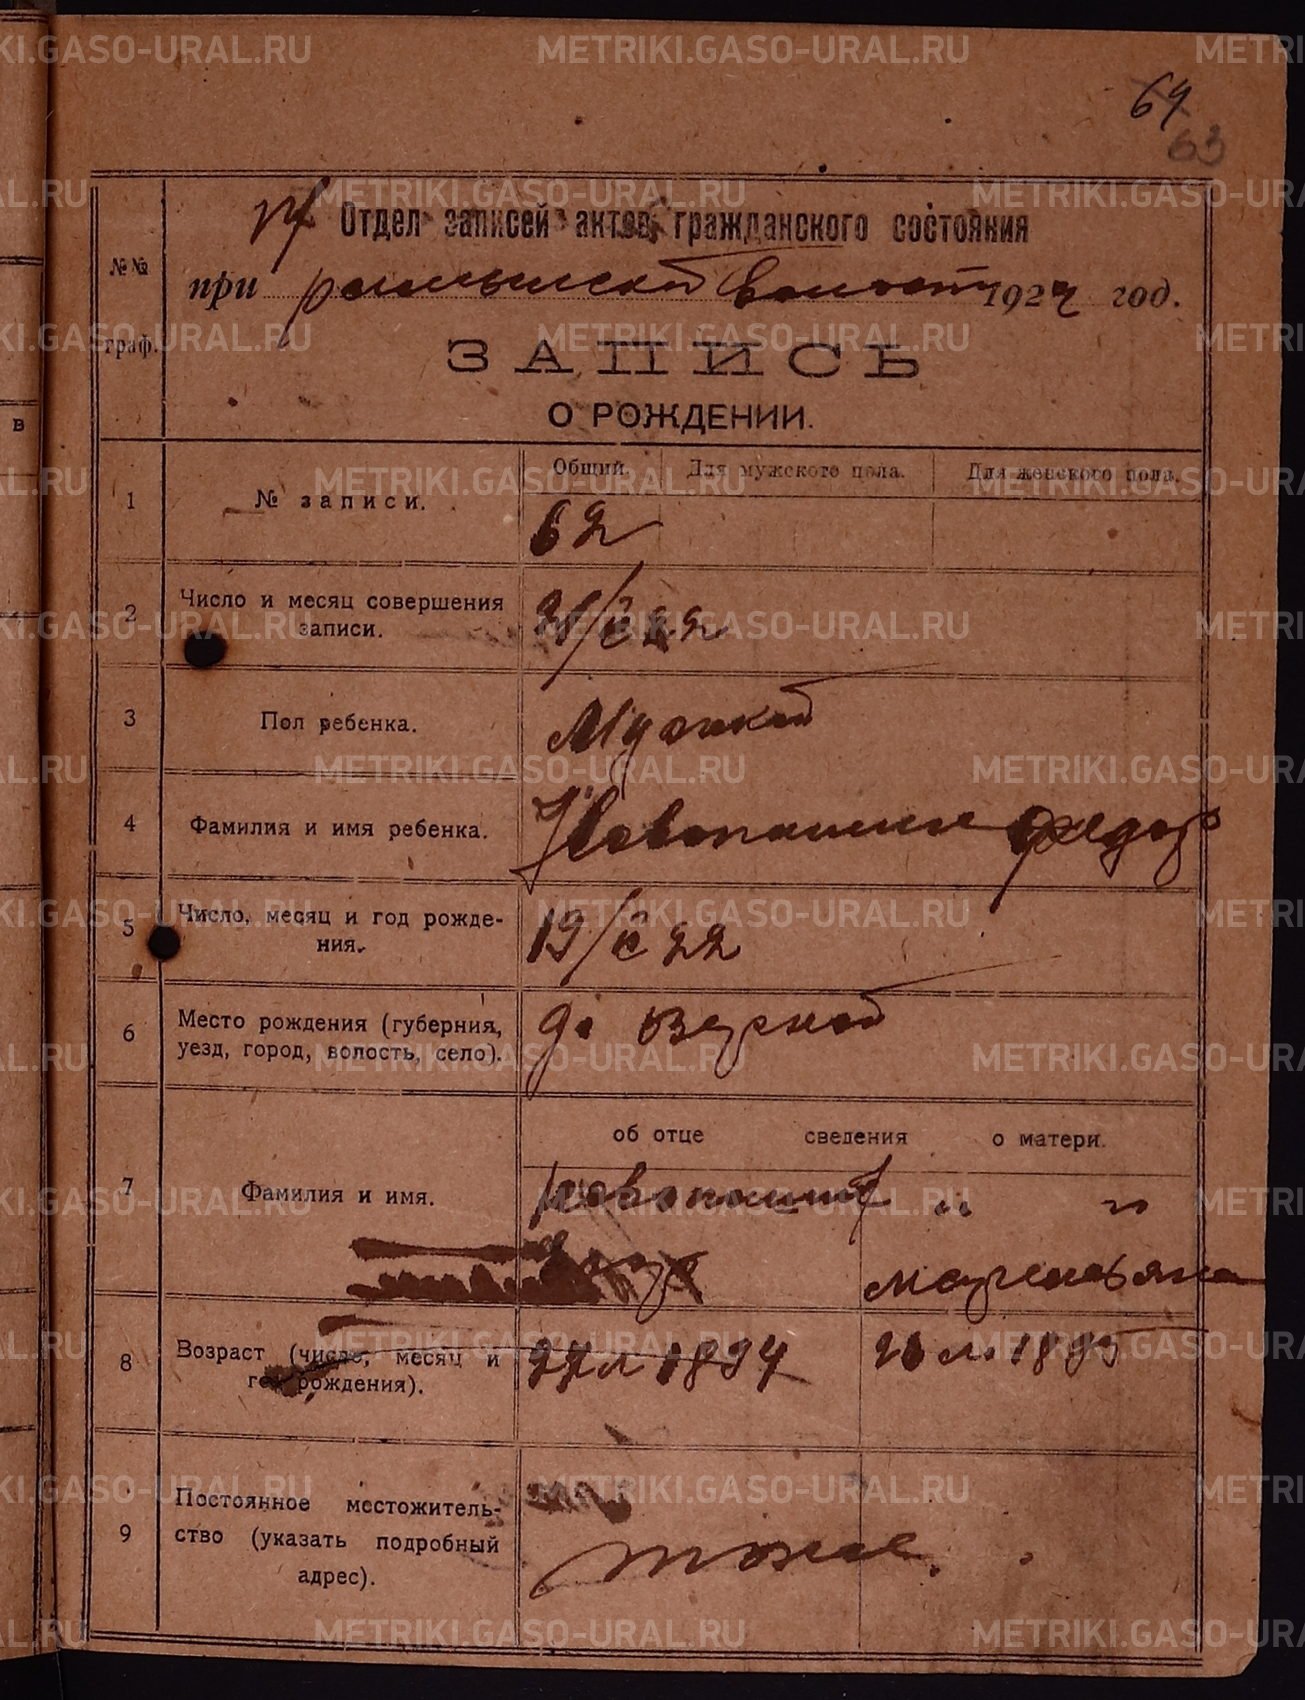 64
63
Отдел записей актов гражданского состояния
при волости 1922 год.
№№ граф.
ЗАПИСЬ
О РОЖДЕНИИ.
Общий. Для мужского пола. Для женского пола.
1 № записи. 62
2 Число и месяц совершения
записи.
3 Пол ребенка. Мужской
4 Фамилия и имя ребенка. Федор
5 Число, месяц и год рожде-
ния. 19/ 22
6 Место рождения (губерния,
уезд, город, волость, село).
об отце сведения о матери.
7 Фамилия и имя. " "
8 Возраст (число, месяц и
год рождения). 27 л 1894 26 л. 1895
9 Постоянное местожитель-
ство (указать подробный
адрес). тоже.
в
METRIKI.GASO-URAL.RU